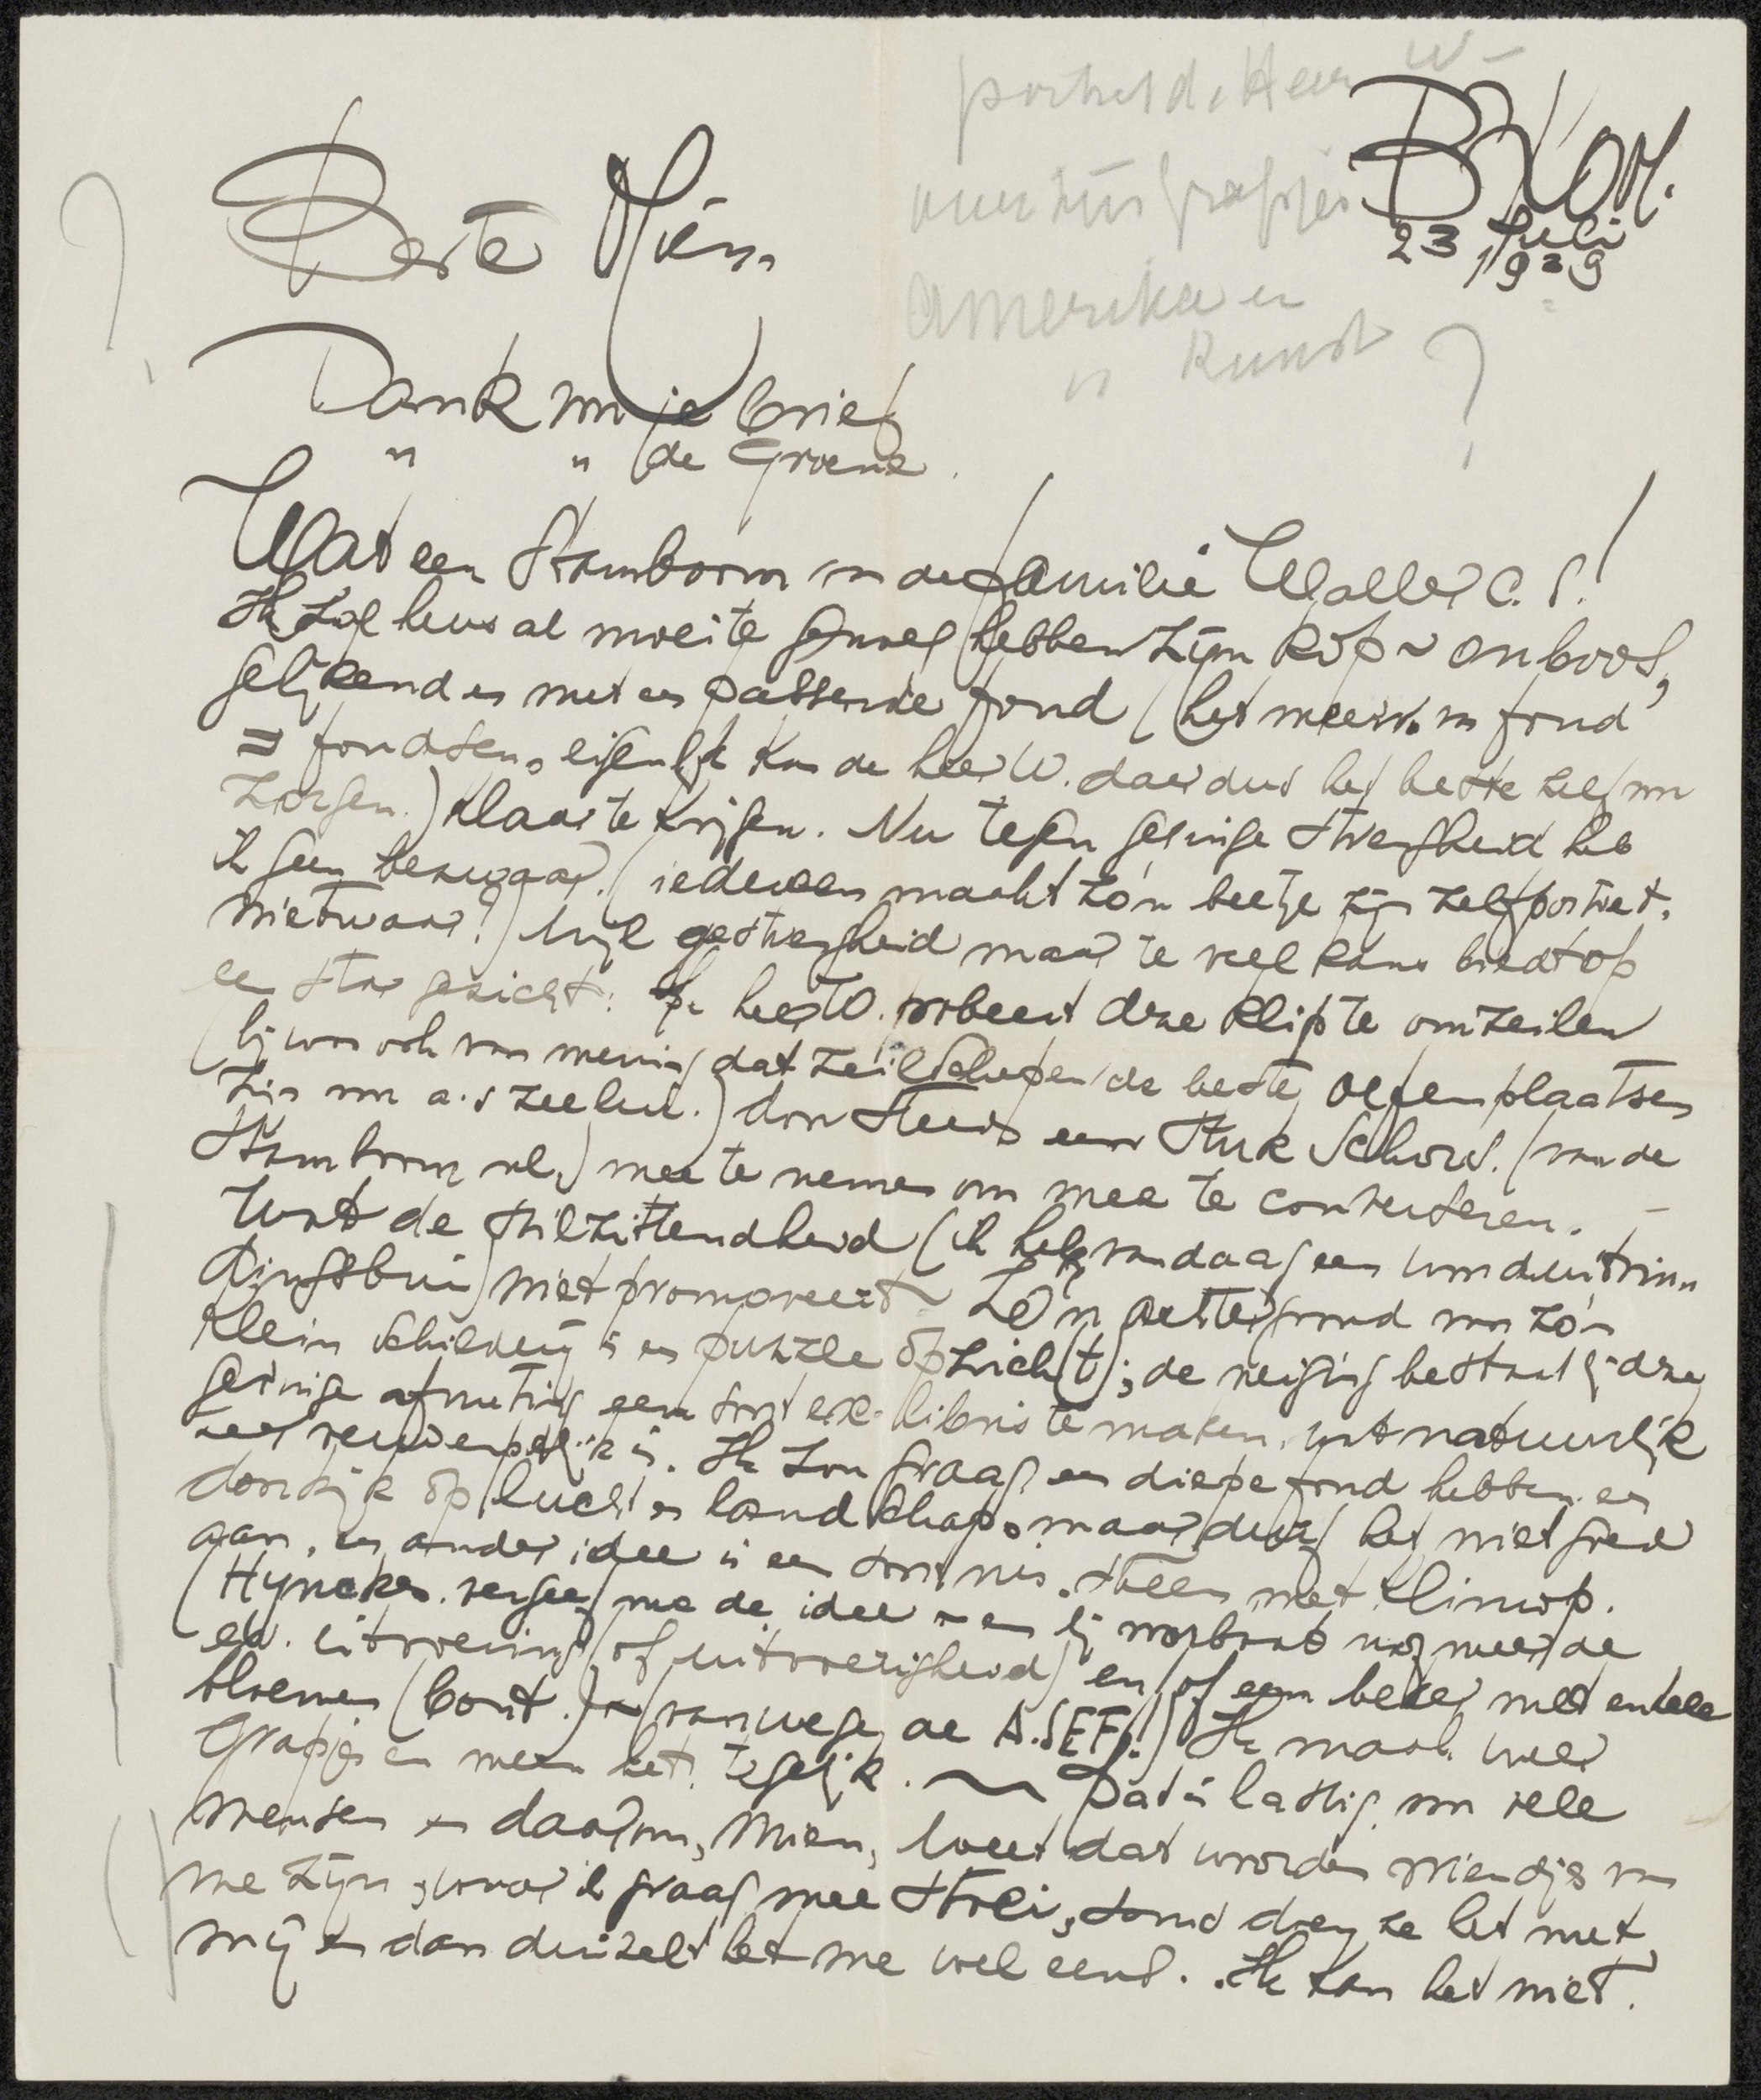 portret d. Heer W
over zijn grapjes
Amerika en
" Kunst ?
23 Juli
1929
Beste Mien
Dank vn je brief
" " de Groene.
Wat een Stamboom vn de familie Waller c.s!
Ik zal heus al moeite genoeg hebben zijn kop ~ onboos,
gelijkend en met een passende fond (het meerv. vn fond
= fondsen, eigenlijk kon de heer W. daar dus het beste zelf vn
zorgen.) klaar te krijgen. Nu tegen geringe stroefheid heb
ik geen bezwaar. (iedereen maakt zo'n beetje zijn zelfportret.
nietwaar?) wijl gestrengheid maar te veel kans biedt op
een star gezicht: De heer W. probeert deze klip te omzeilen
(hij was ook van mening dat zeilschepen de beste oefenplaatsen
zijn vn a.s zeelui.) door steeds een stuk schors. (van de
stamboom nl.) mee te nemen om mee te converseren. –
Wat de stilzittendheid (ik heb vandaag een
niet promoveert ~ Zo'n achtergrond vn zo'n
klein schilderij is en puzzle opzich(t); de neiging bestaat bij deze
geringe afmeting een soort ex-libris te maken, wat natuurlijk
zeer verwerpelijk is. Ik zou graag en diepe fond hebben en
doorkijk op lucht en landschap, maar durf het niet goed
aan, en ander idee is een soort nis. steen met klimop.
(Hynckes. vergeef me de idee ~ en hij voorbaat nog meer de
ev. uitvoering (of uitvoerigheid) en/of een beker met enkele
bloemen (bont.) ~ (vanwege de A.SEF.!) Ik maak weer
Grapjes en meen het tegelijk. ~ Dat is lastig vn vele
mensen en daarom, Mien, weet dat worden vriendjes vn
me zijn, waar ik graag mee stoei, soms doen ze het met
mij en dan duizelt het me wel eens. Ik kan het niet.